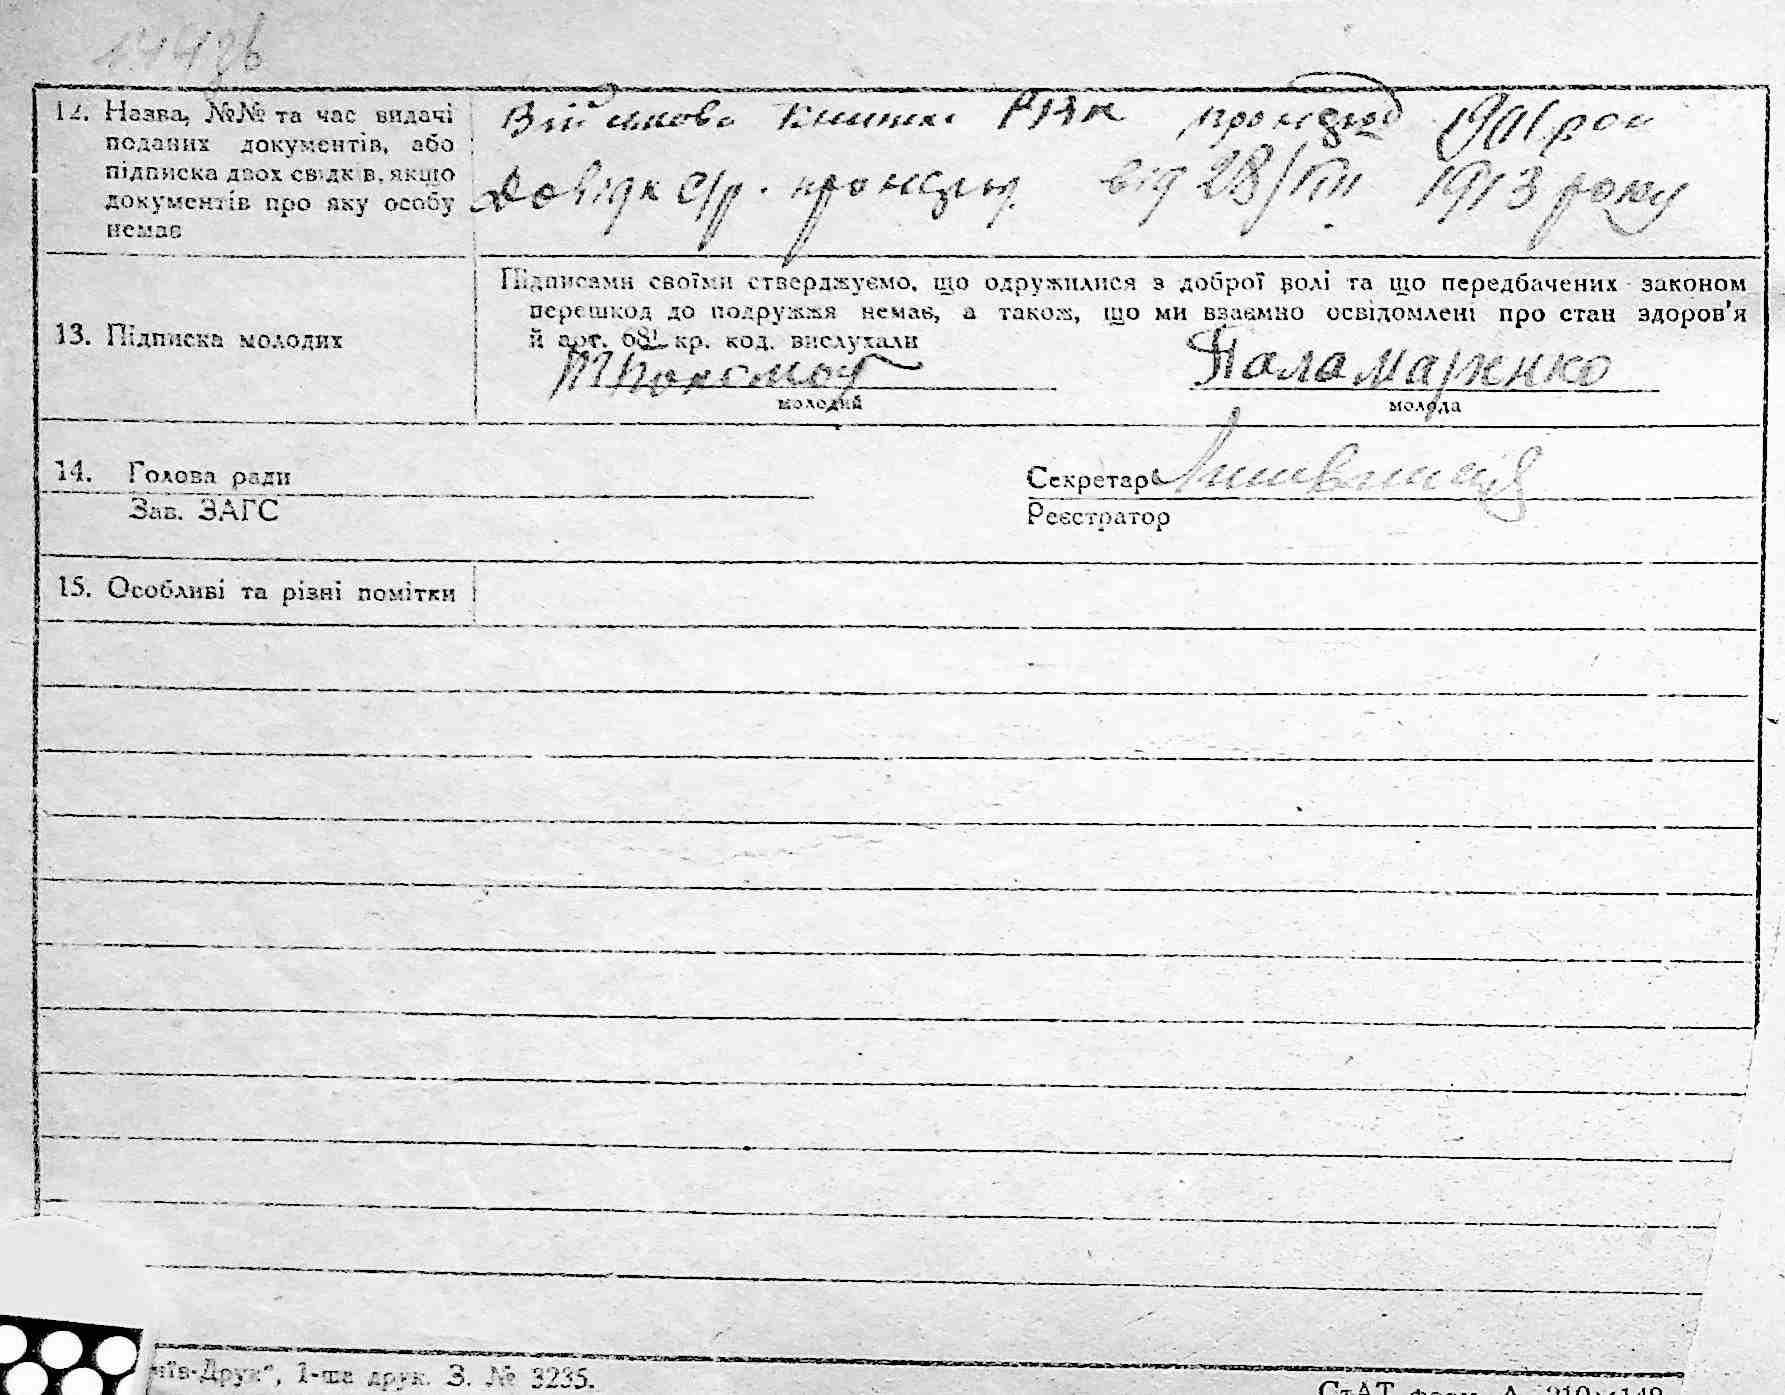 12. Назва, №№ та час видачі
поданих документів, або
підписка двох свідків, якщо
документів про яку особу
немає
Військова книжка РВК про народ 1901 рок
Довідк с/р. про народ. від 28/VIII 1913 року
13. Підписка молодих
Підписами своїми стверджуємо, що одружилися з доброї волі та що передбачених законом
перешкод до подружжя немає, а також, що ми взаємно освідомлені про стан здоров'я
й арт. 68¹ кр. код. вислухали
Паламаренко
молодий
молода
14. Голова ради
Секретар
Зав. ЗАГС
Реєстратор
15. Особливі та різні помітки
иїв-Друк", 1-ша друк. З. № 3235.
СтАТ форм. А 210×148